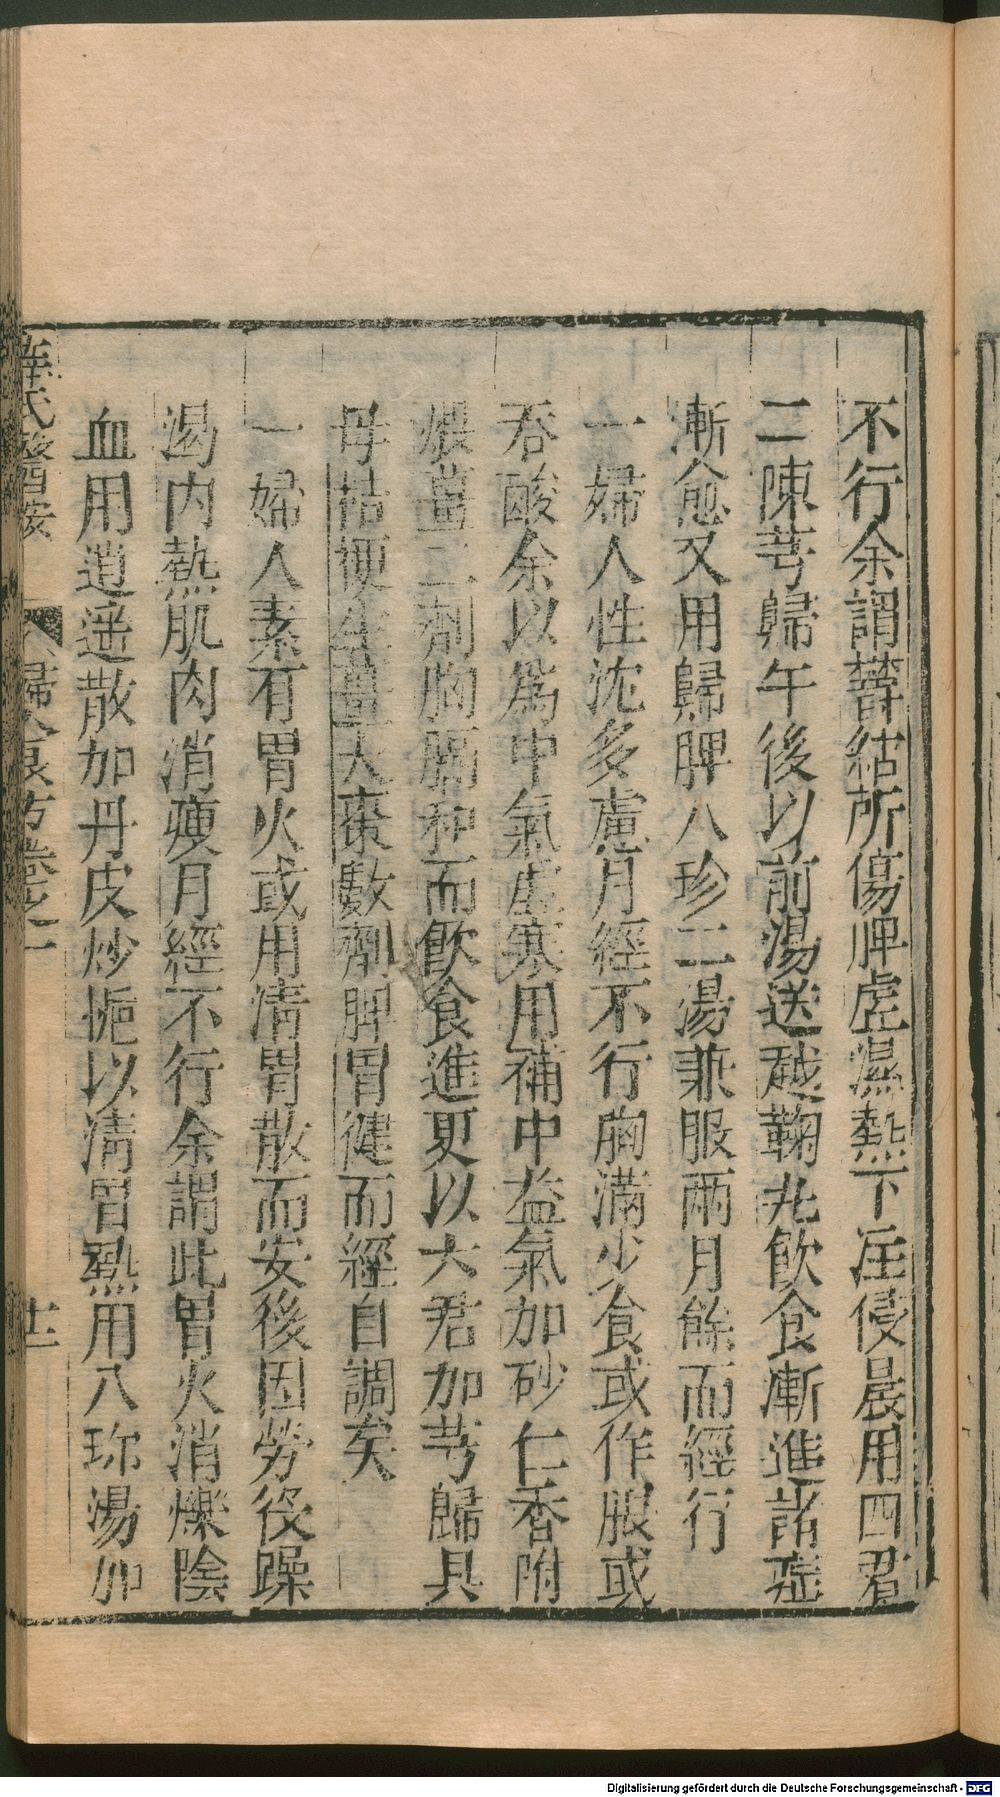 不行余謂鬱結所傷脾虛濕熱下注侵晨用四君
二陳芎歸午後以前湯送越鞠丸飲食漸進諸症
漸愈又用歸脾八珍二湯兼服兩月餘而經行
一婦人性沈多慮月經不行胸滿少食或作脹或
吞酸余以為中氣虛寒用補中益氣加砂仁香附
煨薑二劑胸膈和而飲食進更以六君加芎歸貝
母桔梗生薑大棗數劑脾胃健而經自調矣
一婦人素有胃火或用清胃散而安後因勞役躁
渴內熱肌肉消瘦月經不行余謂此胃火消爍陰
血用逍遥散加丹皮炒梔以清胃熱用八珎湯加
薛氏醫按 婦人良方卷之一 十三
Digitalisierung gefördert durch die Deutsche Forschungsgemeinschaft - DFG